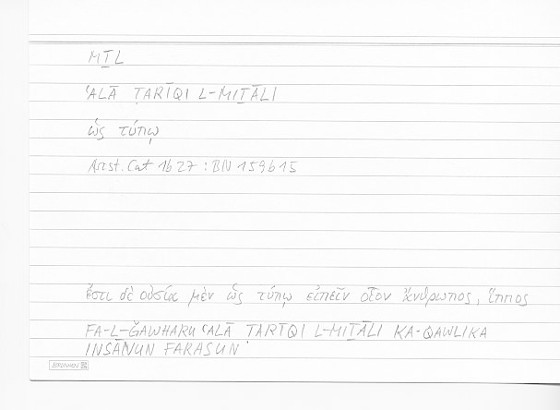 MṮL
ʿALĀ ṬARĪQI L-MIṮĀLI
ὡς τύπῳ
Arist. Cat 1b27 : BN 159b15
ἔστι δὲ οὐσία μὲν ὡς τύπῳ εἰπεῖν οἷον ἄνθρωπος, ἵππος
FA-L-ǦAWHARU ʿALĀ ṬARĪQI L-MIṮĀLI KA-QAWLIKA
INSĀNUN FARASUN